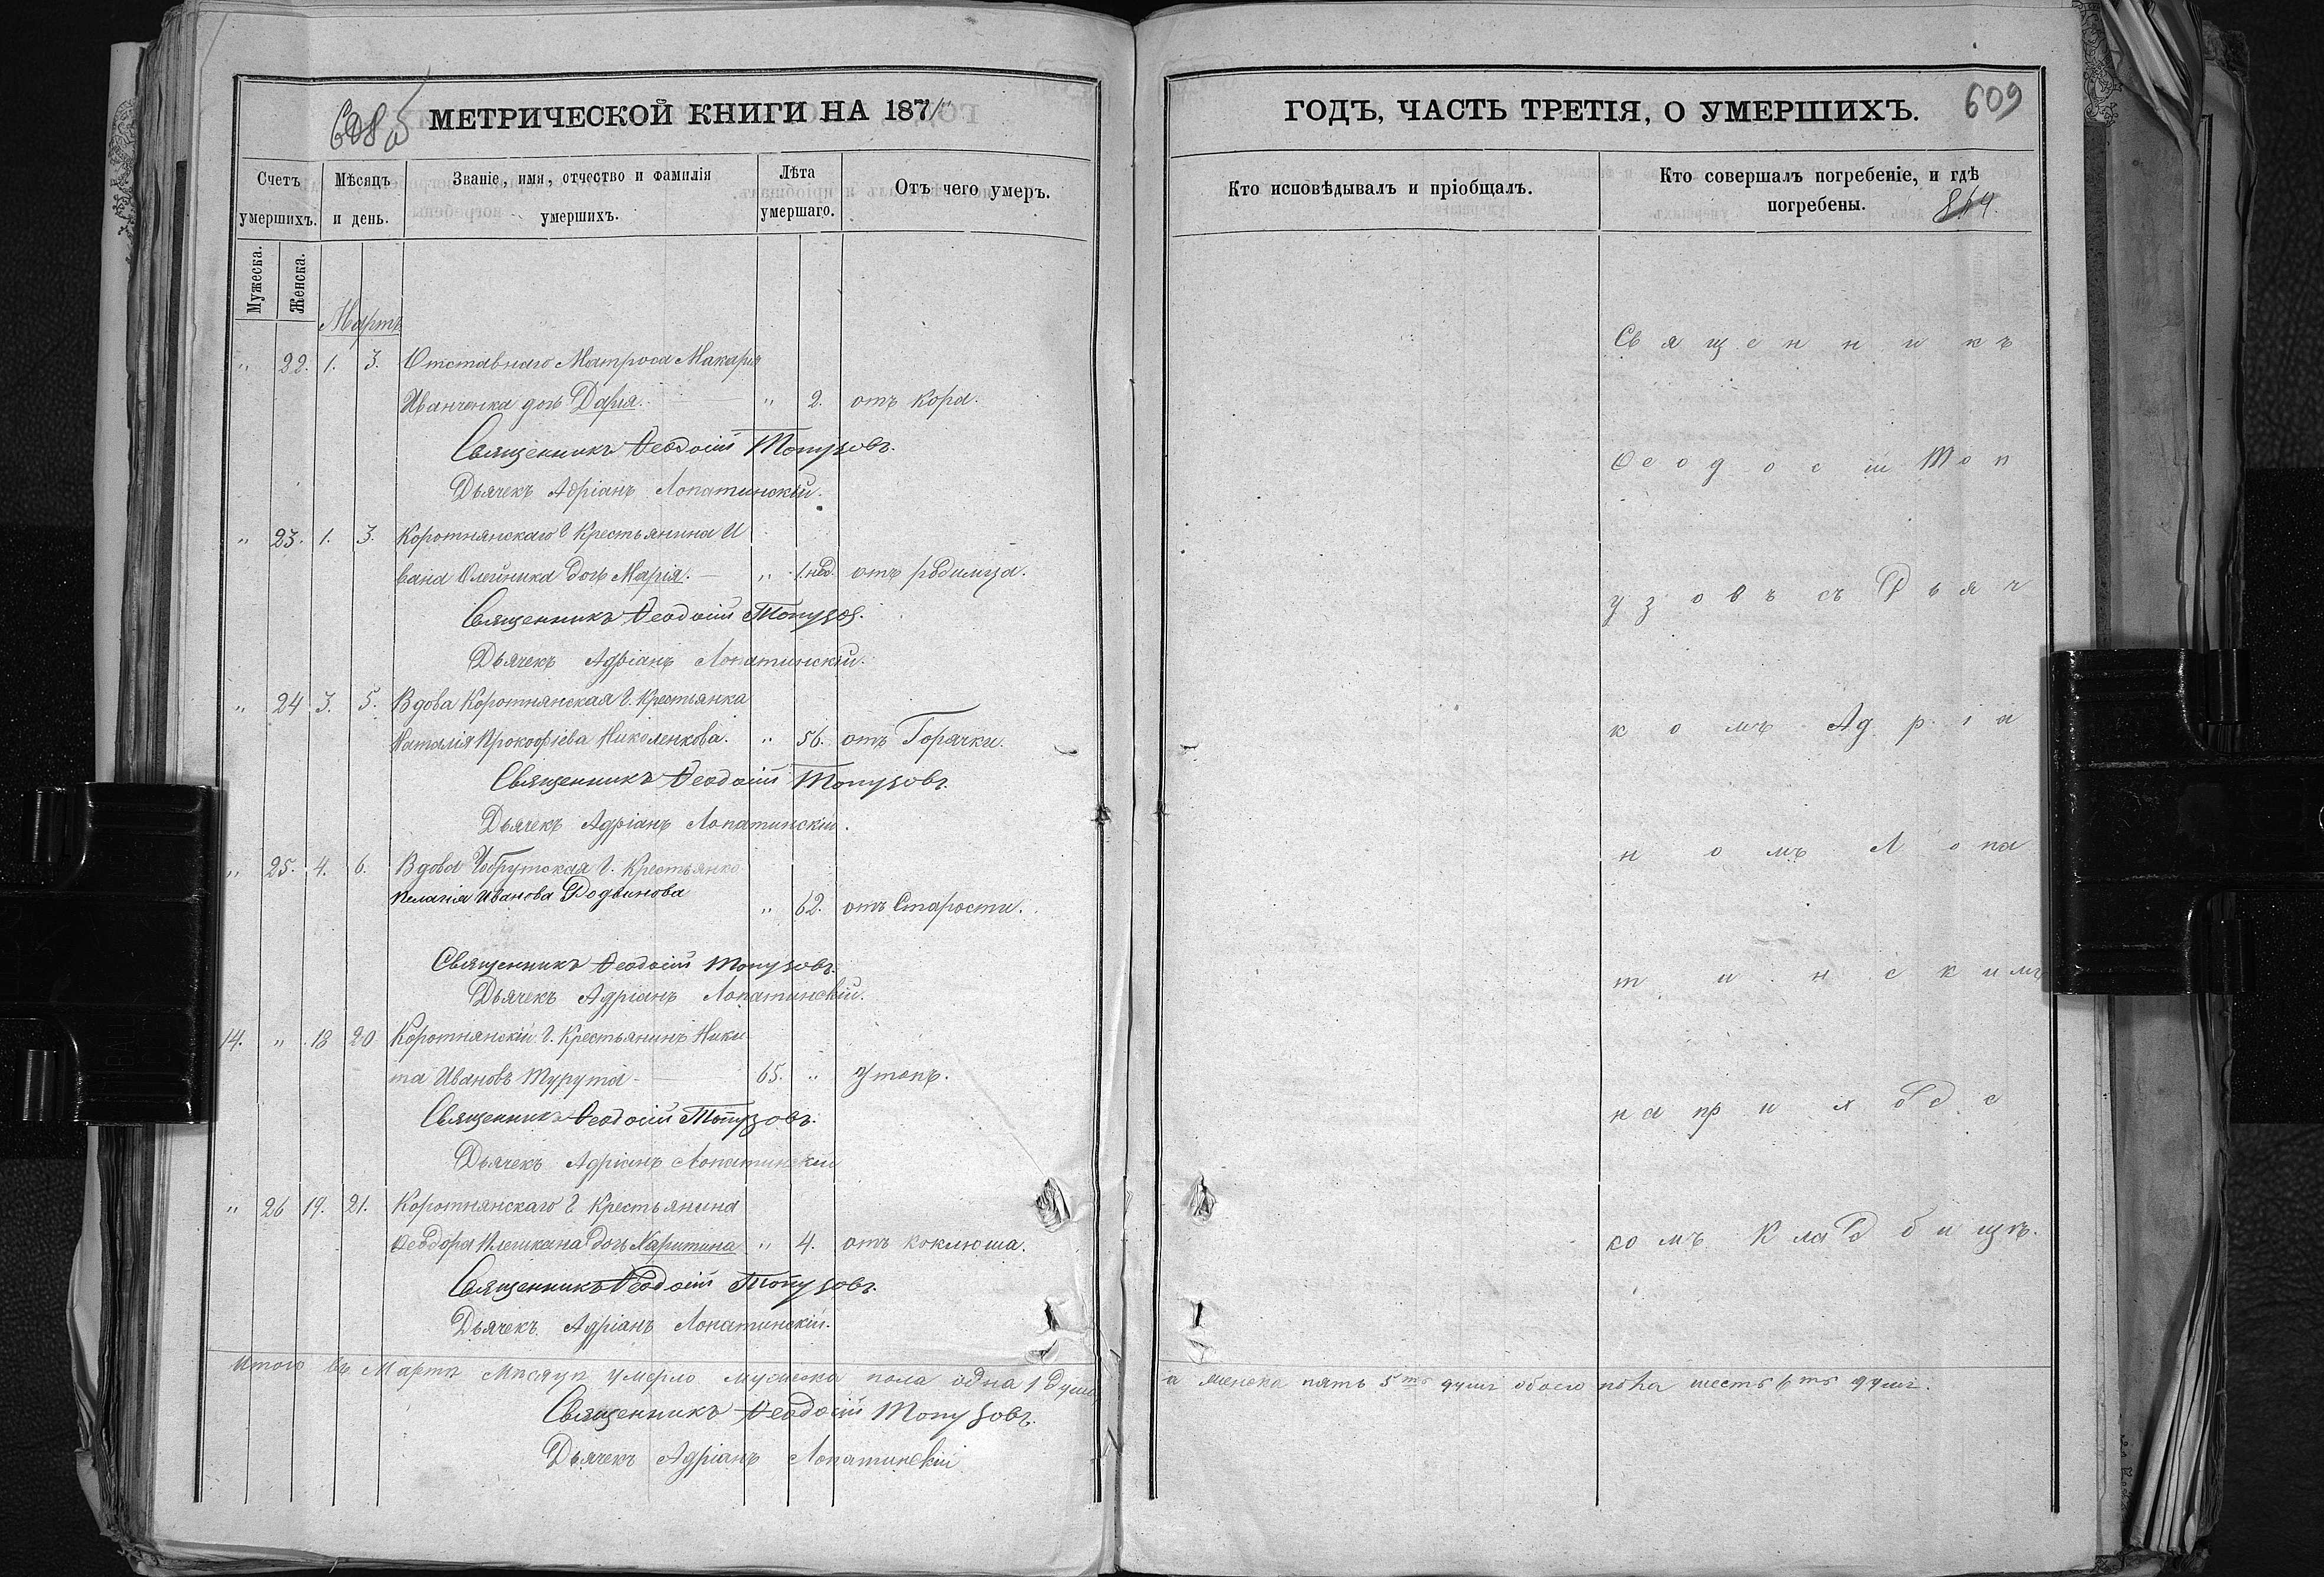 МЕТРИЧЕСКОЙ КНИГИ НА 1871
Счетъ умершихъ.
Мѣсяцъ и день.
Званіе, имя, отчество и фамилія умершихъ.
Лѣта умершаго.
Отъ чего умеръ.
Мужеска.
Женска.
Мартъ
" 22. 1. 3. Отставнаго Матроса Макарія
Иванченка дочь Дарія. " 2. отъ кора.
Священникъ Ѳеодосій Топузовъ.
Дьячекъ Адріанъ Лопатинскій.
" 23. 1. 3. Коротнянскаго О Крестьянина И
вана Олейника дочь Марія. — " 1 нед. отъ родимца.
Священникъ Ѳеодосій Топузов.
Дьячекъ Адріанъ Лопатинскій.
" 24 3. 5. Вдова Коротнянская О. Крестьянка
Наталія Прокофіева Николенкова. " 56. отъ Горячки.
Священникъ Ѳеодосій Топузовъ.
Дьячекъ Адріанъ Лопатинскій.
" 25. 4. 6. Вдова Чобрутская О. Крестьянка
Пелагія Иванова Водвинова " 62. отъ Старости.
Священникъ Ѳеодосій Топузовъ.
Дьячекъ Адріанъ Лопатинскій.
14. " 18 20 Коротнянскій О. Крестьянинъ Ники
та Ивановъ Турута — 65. " Утопъ.
Священникъ Ѳеодосій Топузовъ.
Дьячекъ Адріанъ Лопатинскій
" 26 19. 21. Коротнянскаго О Крестьянина
Ѳеодора Плешкана дочь Харитина " 4. отъ коклюша.
Священникъ Ѳеодосій Топузовъ.
Дьячекъ Адріанъ Лопатинскій.
Итого въ Мартѣ Мѣсяцѣ умерло мужеска пола одна 1 душа,
Священникъ Ѳеодосій Топузовъ.
Дьячекъ Адріанъ Лопатинскій
ГОДЪ, ЧАСТЬ ТРЕТІЯ, О УМЕРШИХЪ. 609
Кто исповѣдывалъ и пріобщалъ.
Кто совершалъ погребеніе, и гдѣ
погребены.
Священникъ
Ѳеодосій Топ
узовъ съ Дьяч
комъ Адріа
номъ Лопа
тинскимъ
на приходс
комъ Кладбищѣ.
а женска пять 5ть душъ обоего пола шесть 6ть душъ.